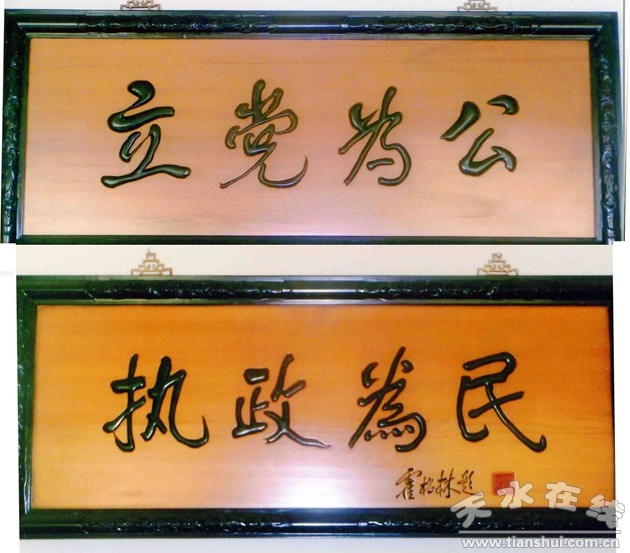 立党为公
执政為民
霍松林题
天水在线
www.tianshui.com.cn